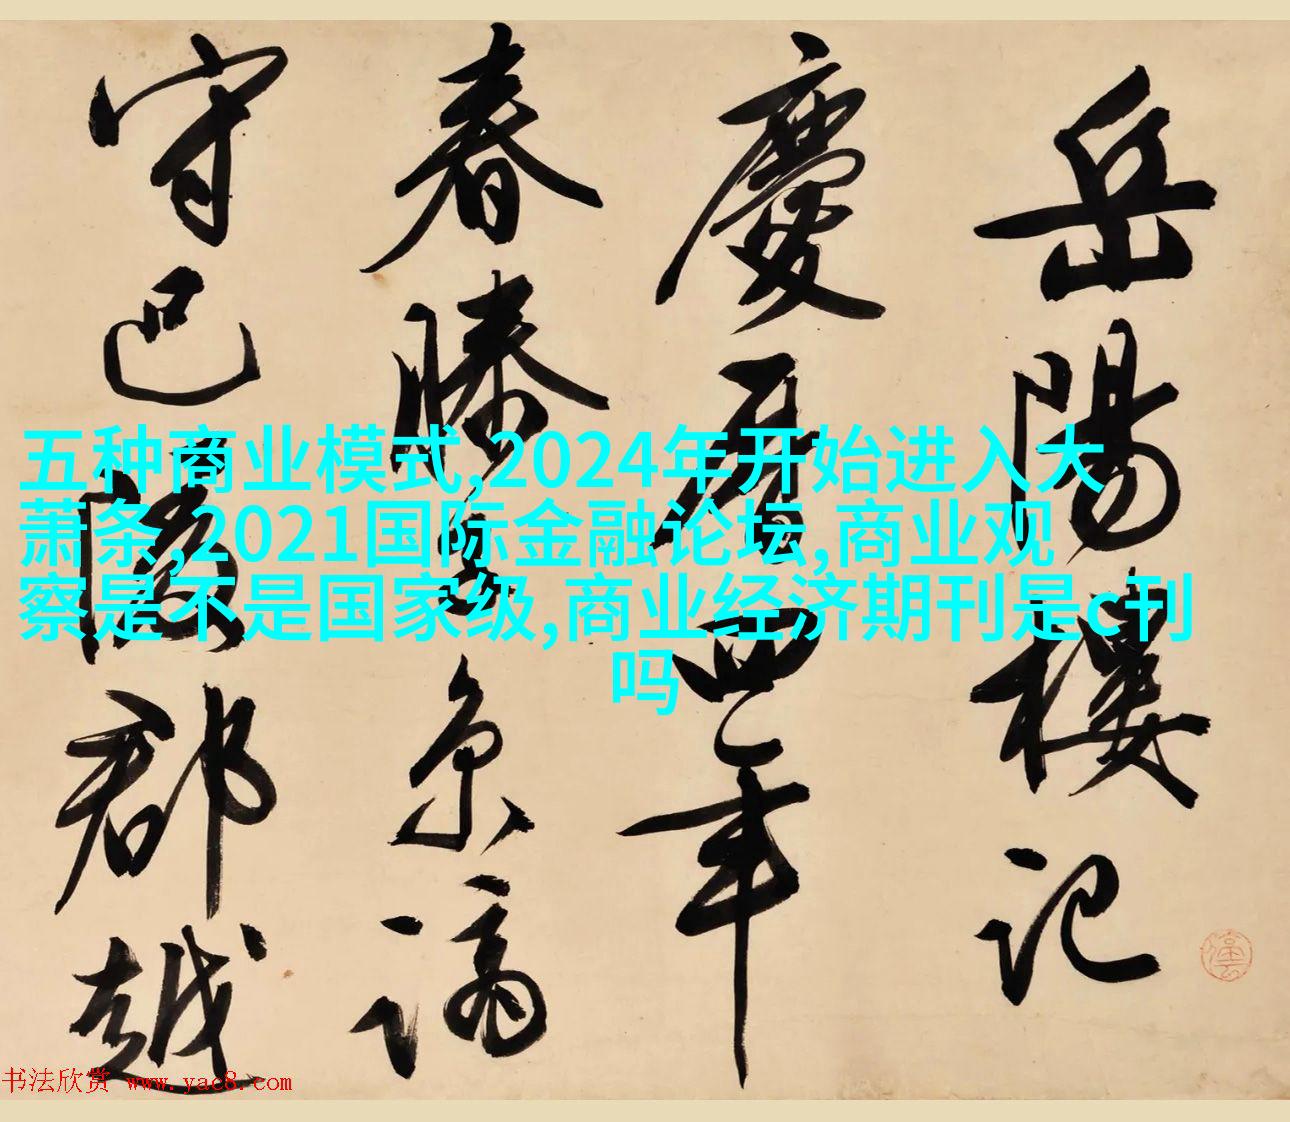 岳陽樓記
慶曆四年
春滕子京謫
守巴陵郡越
五种商业模式,2024年开始进入大
萧条,2021国际金融论坛,商业观
察是不是国家级,商业经济期刊是c刊
吗
书法欣赏 www.yac8.com